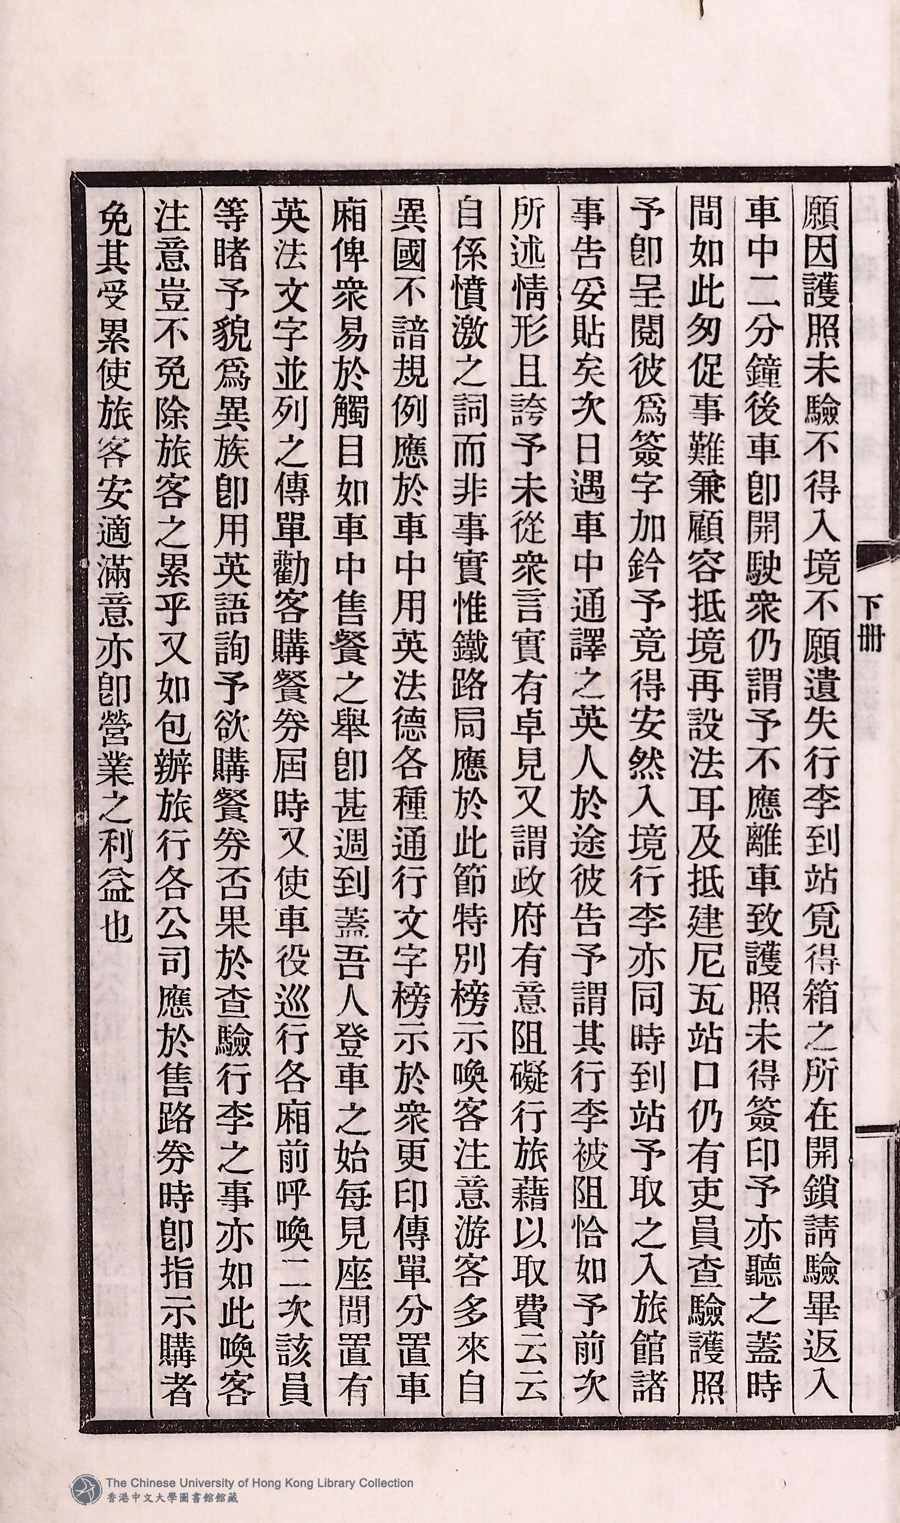 願因護照未驗不得入境不願遺失行李到站覓得箱之所在開鎖請驗畢返入
車中二分鐘後車卽開駛衆仍謂予不應離車致護照未得簽印予亦聽之蓋時
間如此匆促事難兼顧容抵境再設法耳及抵建尼瓦站口仍有吏員查驗護照
予卽呈閱彼爲簽字加鈐予竟得安然入境行李亦同時到站予取之入旅館諸
事告妥貼矣次日遇車中通譯之英人於途彼告予謂其行李被阻恰如予前次
所述情形且誇予未從衆言實有卓見又謂政府有意阻礙行旅藉以取費云云
自係憤激之詞而非事實惟鐵路局應於此節特別榜示喚客注意游客多來自
異國不諳規例應於車中用英法德各種通行文字榜示於衆更印傳單分置車
廂俾衆易於觸目如車中售餐之舉卽甚週到蓋吾人登車之始每見座間置有
英法文字並列之傳單勸客購餐券屆時又使車役巡行各廂前呼喚二次該員
等睹予貌爲異族卽用英語詢予欲購餐券否果於查驗行李之事亦如此喚客
注意豈不免除旅客之累乎又如包辦旅行各公司應於售路券時卽指示購者
免其受累使旅客安適滿意亦卽營業之利益也
下冊
The Chinese University of Hong Kong Library Collection
香港中文大學圖書館館藏